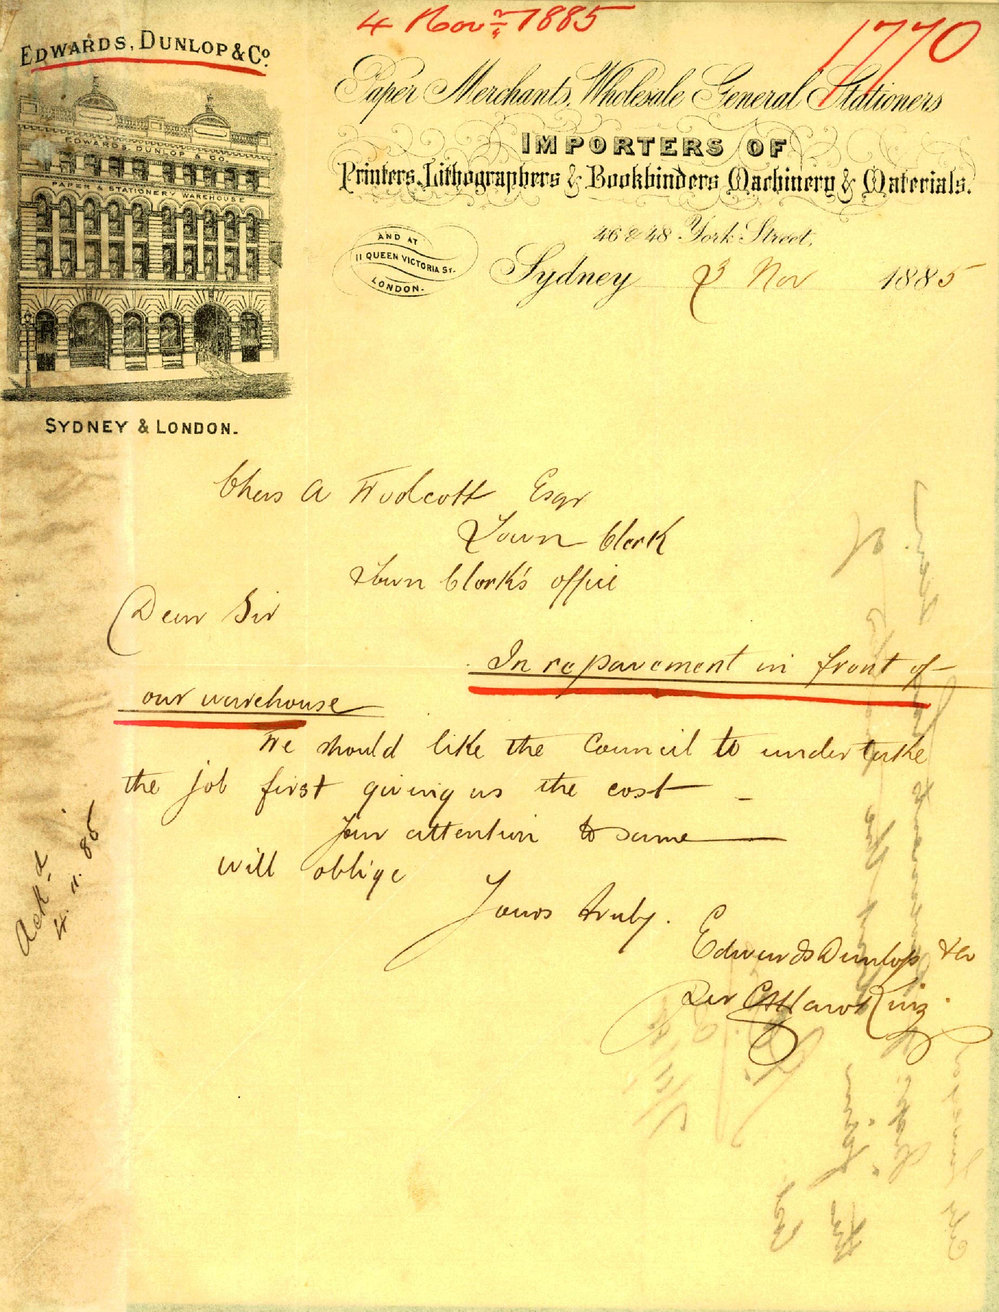 4 Nov.r 1885
1770
EDWARDS, DUNLOP & Co.
Paper Merchants, Wholesale General Stationers
IMPORTERS OF
Printers, Lithographers & Bookbinders Machinery & Materials.
EDWARDS DUNLOP & CO.
PAPER & STATIONERY WAREHOUSE
46 & 48 York Street,
AND AT
11 QUEEN VICTORIA ST.
LONDON.
Sydney 3 Nov 1885
SYDNEY & LONDON.
Chas A Wodcott Esqr
Town Clerk
Town Clerk's office
Dear Sir
In re pavement in front of
our warehouse
We should like the Council to undertake
the job first giving us the cost
Your attention to same
will oblige
Yours truly.
Edwards Dunlop & Co
Per
Ack.d
4. 11. 85